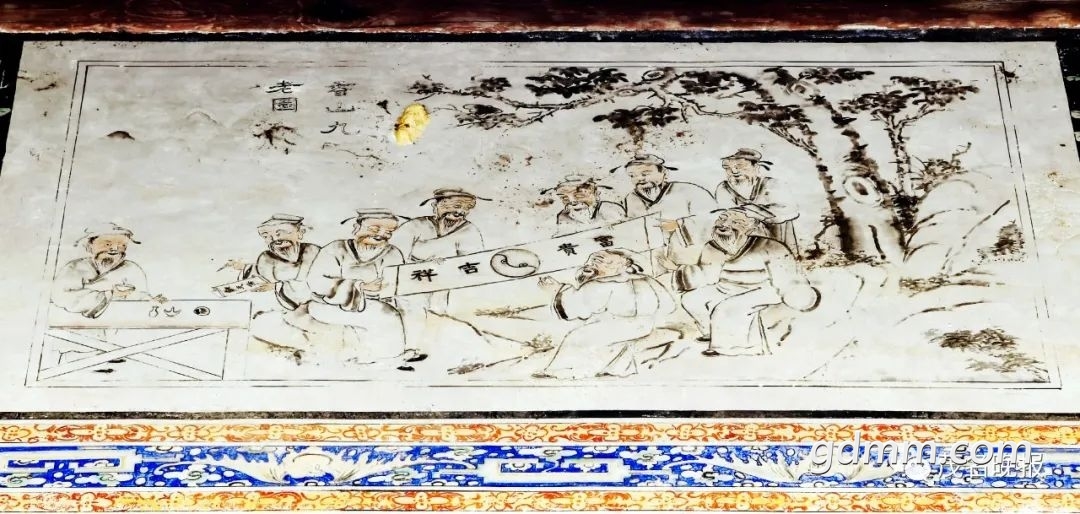 香山九
老圖
富貴吉祥
gdmm.com
茂名晚报